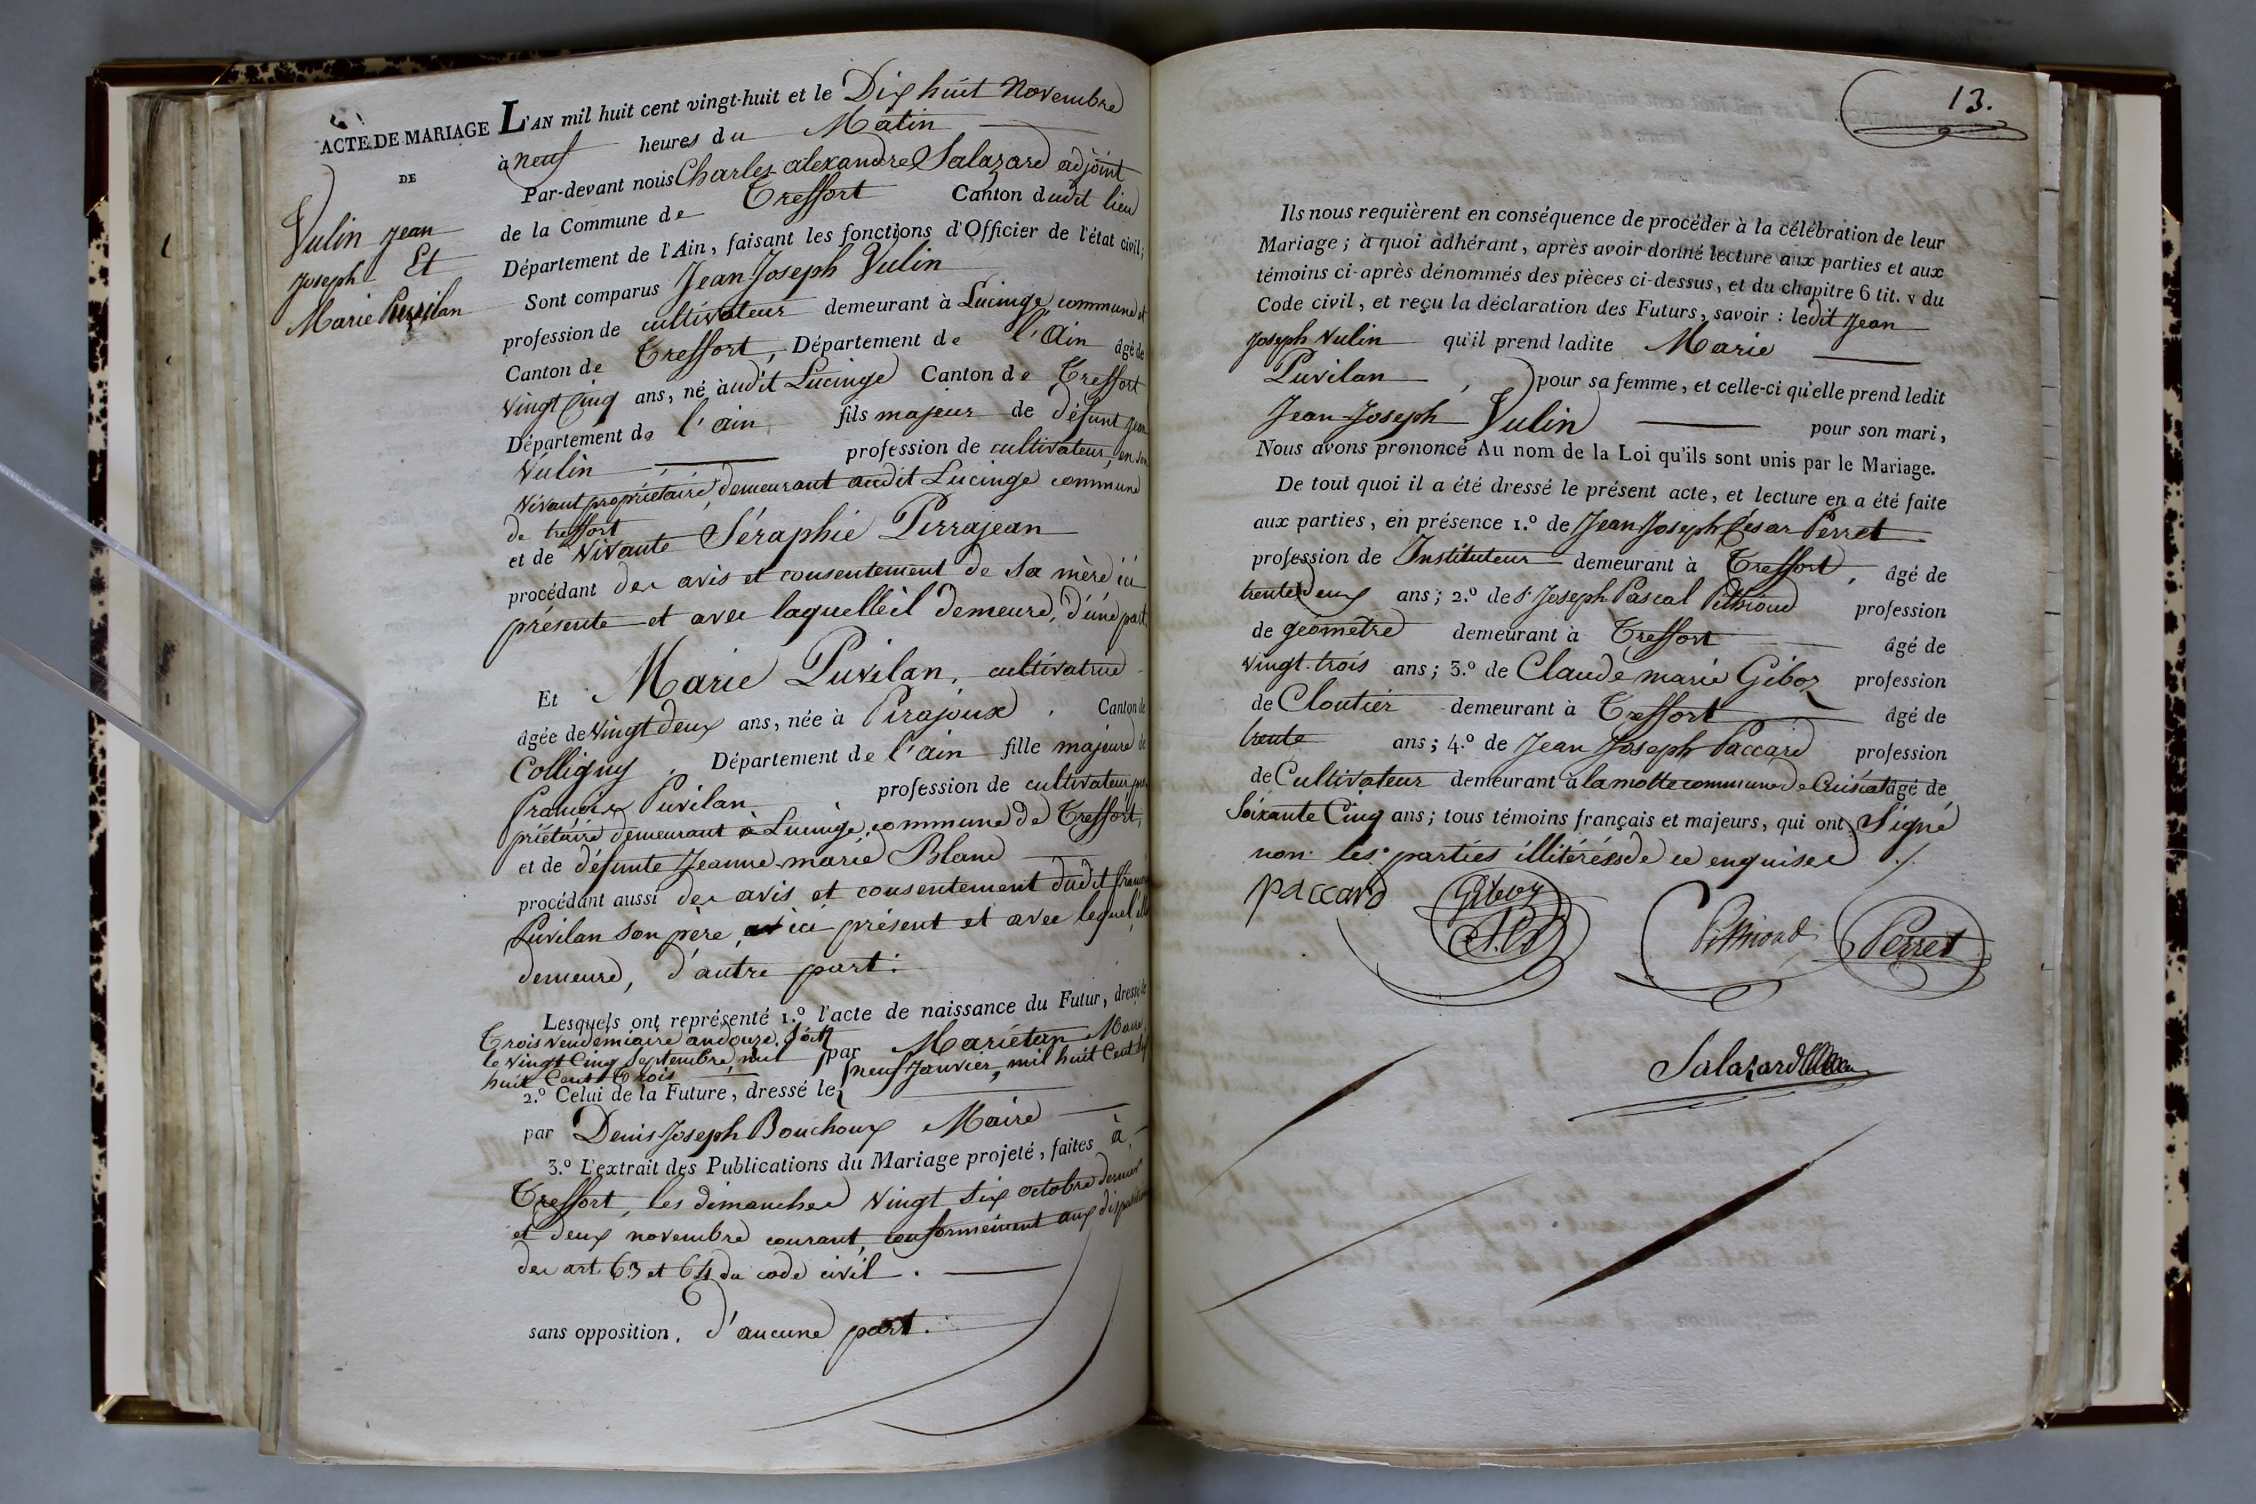 ACTE DE MARIAGE
DE
Vulin Jean
Joseph Et
Marie Puvilan
L'AN mil huit cent vingt-huit et le Dix huit Novembre
à neuf heures du Matin
Par-devant nous Charles alexandre Salazard adjoint
de la Commune de Treffort Canton dudit lieu
Département de l'Ain, faisant les fonctions d'Officier de l'état civil;
Sont comparus Jean Joseph Vulin
profession de cultivateur demeurant à Lucinge commune et
Canton de Treffort, Département de l'Ain âgé de
Vingt Cinq ans, né audit Lucinge Canton de Treffort
Département de l'ain fils majeur de défunt jean
Vulin profession de cultivateur, en son
vivant propriétaire demeurant audit Lucinge commune
de treffort
et de vivante Séraphie Perrajean
procédant des avis et consentement de Sa mère ici
présente et avec laquelle il demeure, d'une part
Et Marie Puvilan, cultivatrice
âgée de vingt deux ans, née à Pirajoux, Canton de
Colligny, Département de l'ain fille majeure de
François Puvilan profession de cultivateur pro
priétaire demeurant à Lucinge, commune de Treffort,
et de défunte Jeanne marie Blanc
procédant aussi des avis et consentement dudit françois
Puvilan Son père, ici présent et avec lequel, elle
demeure, d'autre part.
Lesquels ont représenté 1.º l'acte de naissance du Futur, dressé le
Trois vendemiaire an douze, Soit
le vingt Cinq Septembre, mil
huit Cent Trois par Mariétan Maire
2.º Celui de la Future, dressé le neuf Janvier, mil huit Cent Six
par Denis Joseph Bouchoux Maire
3.º L'extrait des Publications du Mariage projeté, faites à
Treffort, les dimanches vingt Six octobre dernier
et deux novembre courant, conformément aux dispositions
des art. 63 et 64 du code civil.
sans opposition, d'aucune part.
13.
Ils nous requièrent en conséquence de procéder à la célébration de leur
Mariage; à quoi adhérant, après avoir donné lecture aux parties et aux
témoins ci-après dénommés des pièces ci-dessus, et du chapitre 6 tit. v du
Code civil, et reçu la déclaration des Futurs, savoir: ledit Jean
Joseph Vulin qu'il prend ladite Marie
Puvilan, pour sa femme, et celle-ci qu'elle prend ledit
Jean Joseph Vulin pour son mari,
Nous avons prononcé Au nom de la Loi qu'ils sont unis par le Mariage.
De tout quoi il a été dressé le présent acte, et lecture en a été faite
aux parties, en présence 1.º de Jean Joseph César Perret
profession de Instituteur demeurant à Treffort, âgé de
trente Deux ans; 2.º de Sr Joseph Pascal Pithioud profession
de géomètre demeurant à Treffort âgé de
vingt-trois ans; 3.º de Claude marie Giboz profession
de Cloutier demeurant à Treffort âgé de
trente ans; 4.º de Jean Joseph Paccard profession
de Cultivateur demeurant à la motte commune de Cuisiat âgé de
Soixante Cinq ans; tous témoins français et majeurs, qui ont Signé
non les parties illitérées de ce enquises ./.
paccard Giboz Pithioud Perret
Salazard